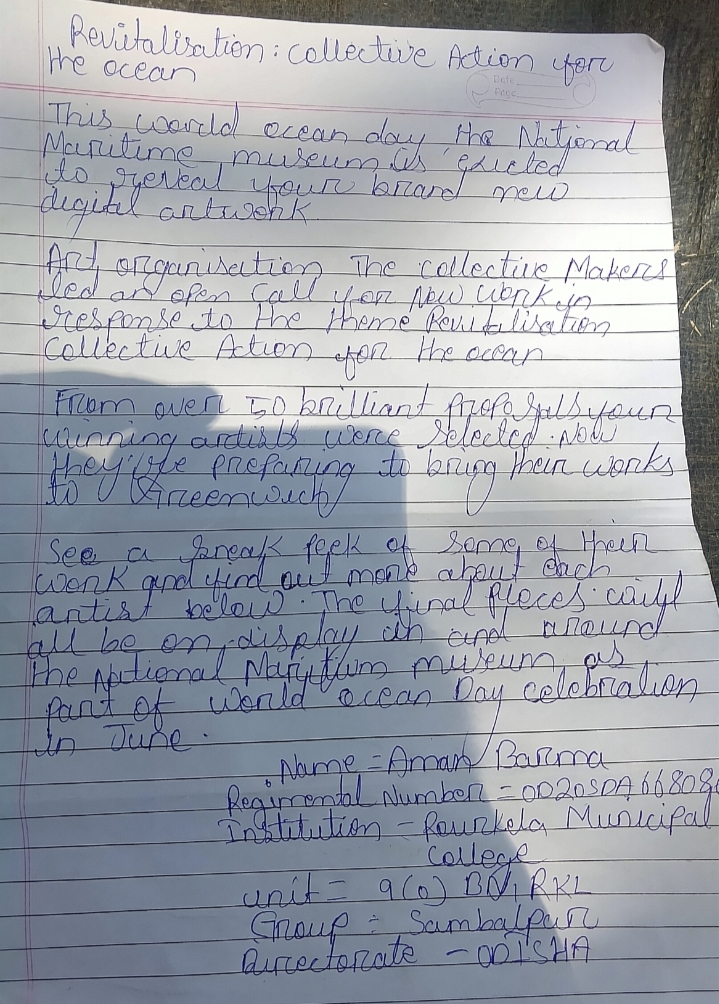 Revitalisation : Collective Action for
the ocean
Date
Page
This world ocean day, the National
Maritime museum is excited
to reveal your brand new
digital artwork
Art organisation The collective Makers
led an open call for New work in
response to the theme Revitalisation
Collective Action for the ocean
From over 50 brilliant proposals your
winning artists were selected. Now
they're preparing to bring their works
to Greenwich
See a sneak peek of some of their
work and find out more about each
artist below. The final pieces will
all be on display in and around
the National Maritium museum as
part of world ocean Day celebration
in June.
Name = Aman Barma
Regimental Number = OD20SDA66808
Institution - Rourkela Municipal
College
unit = 9(O) BN, RKL
Group = Sambalpur
Directorate - ODISHA